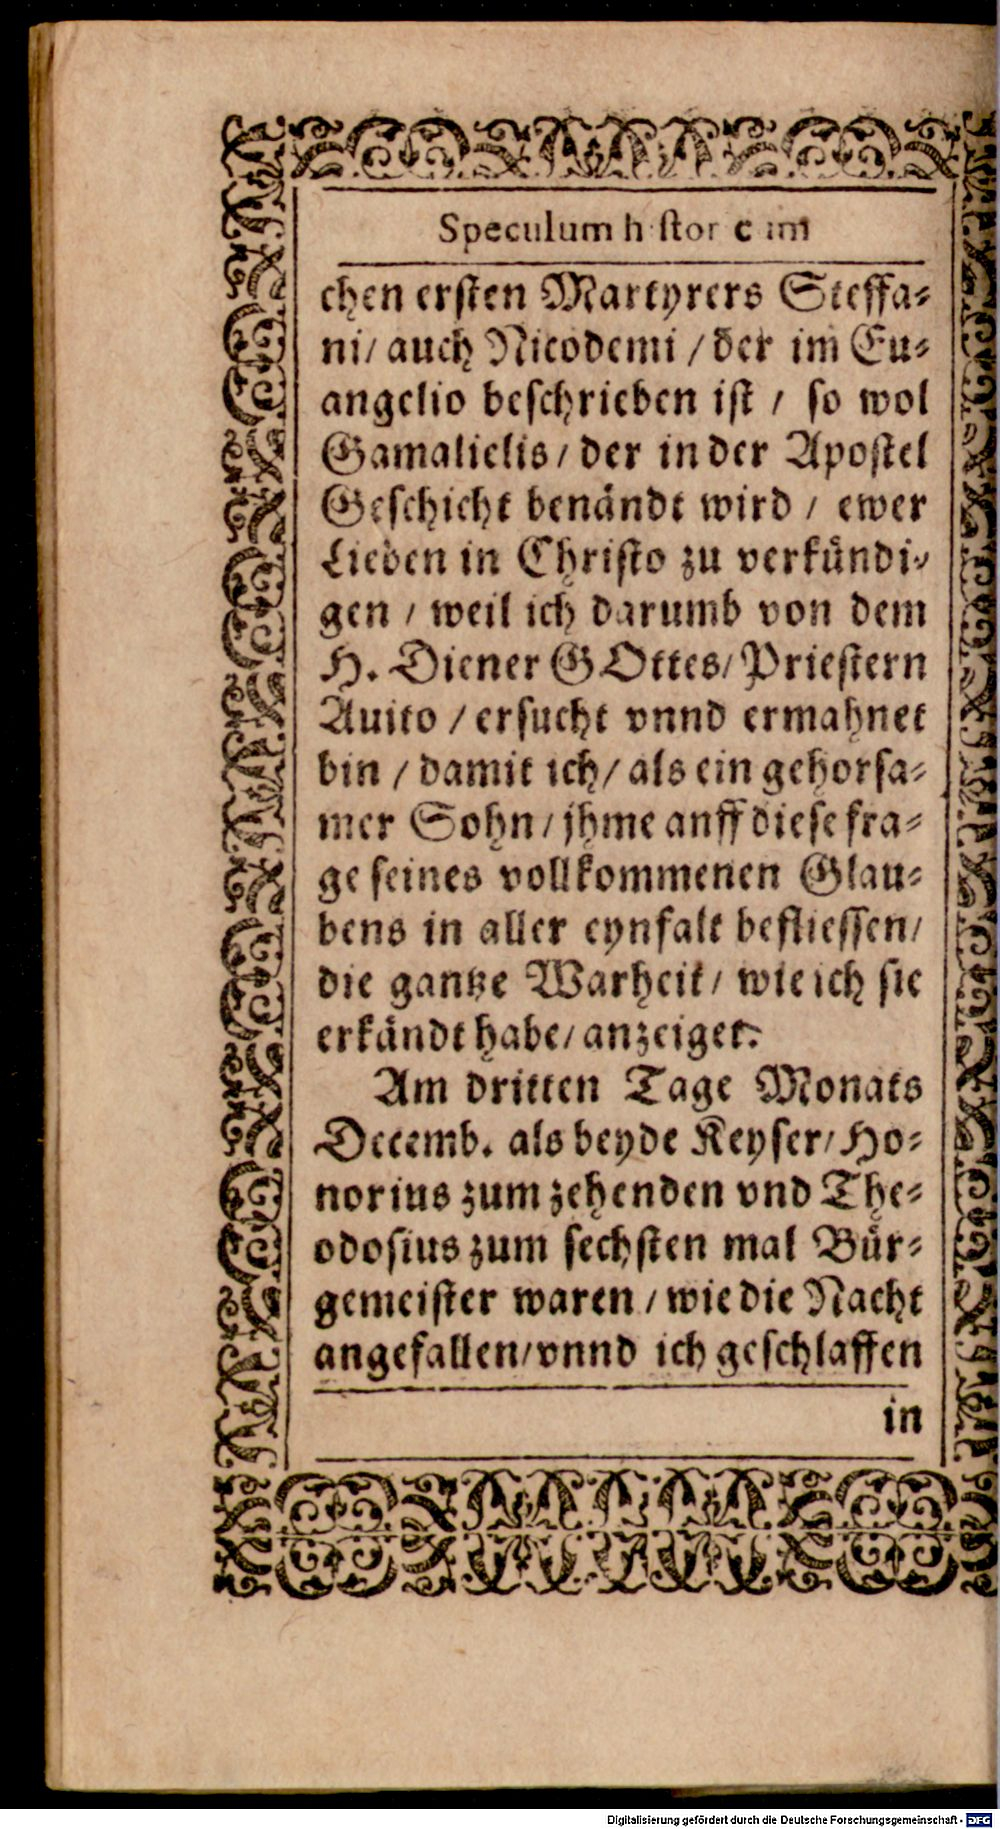 Speculum h stor c um
chen ersten Martyrers Steffa⸗
ni/ auch Nicodemi / der im Eu⸗
angelio beschrieben ist / so wol
Gamalielis/ der in der Apostel
Geschicht benändt wird / ewer
Lieben in Christo zu verkündi⸗
gen / weil ich darumb von dem
H. Diener GOttes/ Priestern
Auito / ersucht vnnd ermahnet
bin / damit ich/ als ein gehorsa⸗
mer Sohn/ jhme anff diese fra⸗
ge seines vollkommenen Glau⸗
bens in aller eynfalt befliessen/
die gantze Warheit/ wie ich sie
erkändt habe/ anzeiget.
Am dritten Tage Monats
Decemb. als beyde Keyser/ Ho⸗
norius zum zehenden vnd The⸗
odosius zum sechsten mal Bür⸗
gemeister waren / wie die Nacht
angefallen/ vnnd ich geschlaffen
in
Digitalisierung gefördert durch die Deutsche Forschungsgemeinschaft - DFG